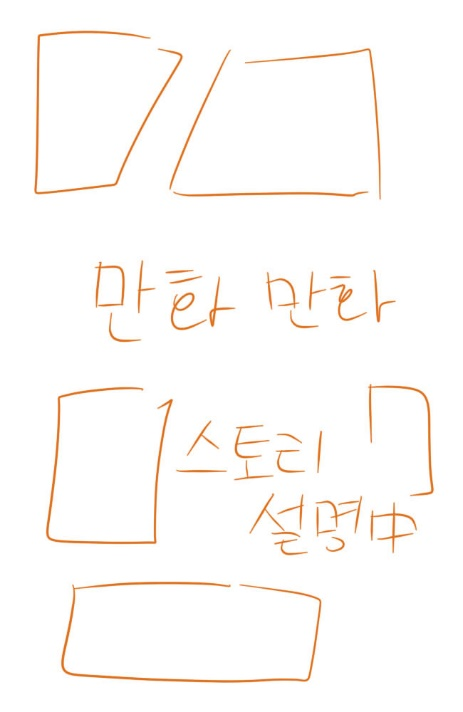 만화 만화
스토리
설명中